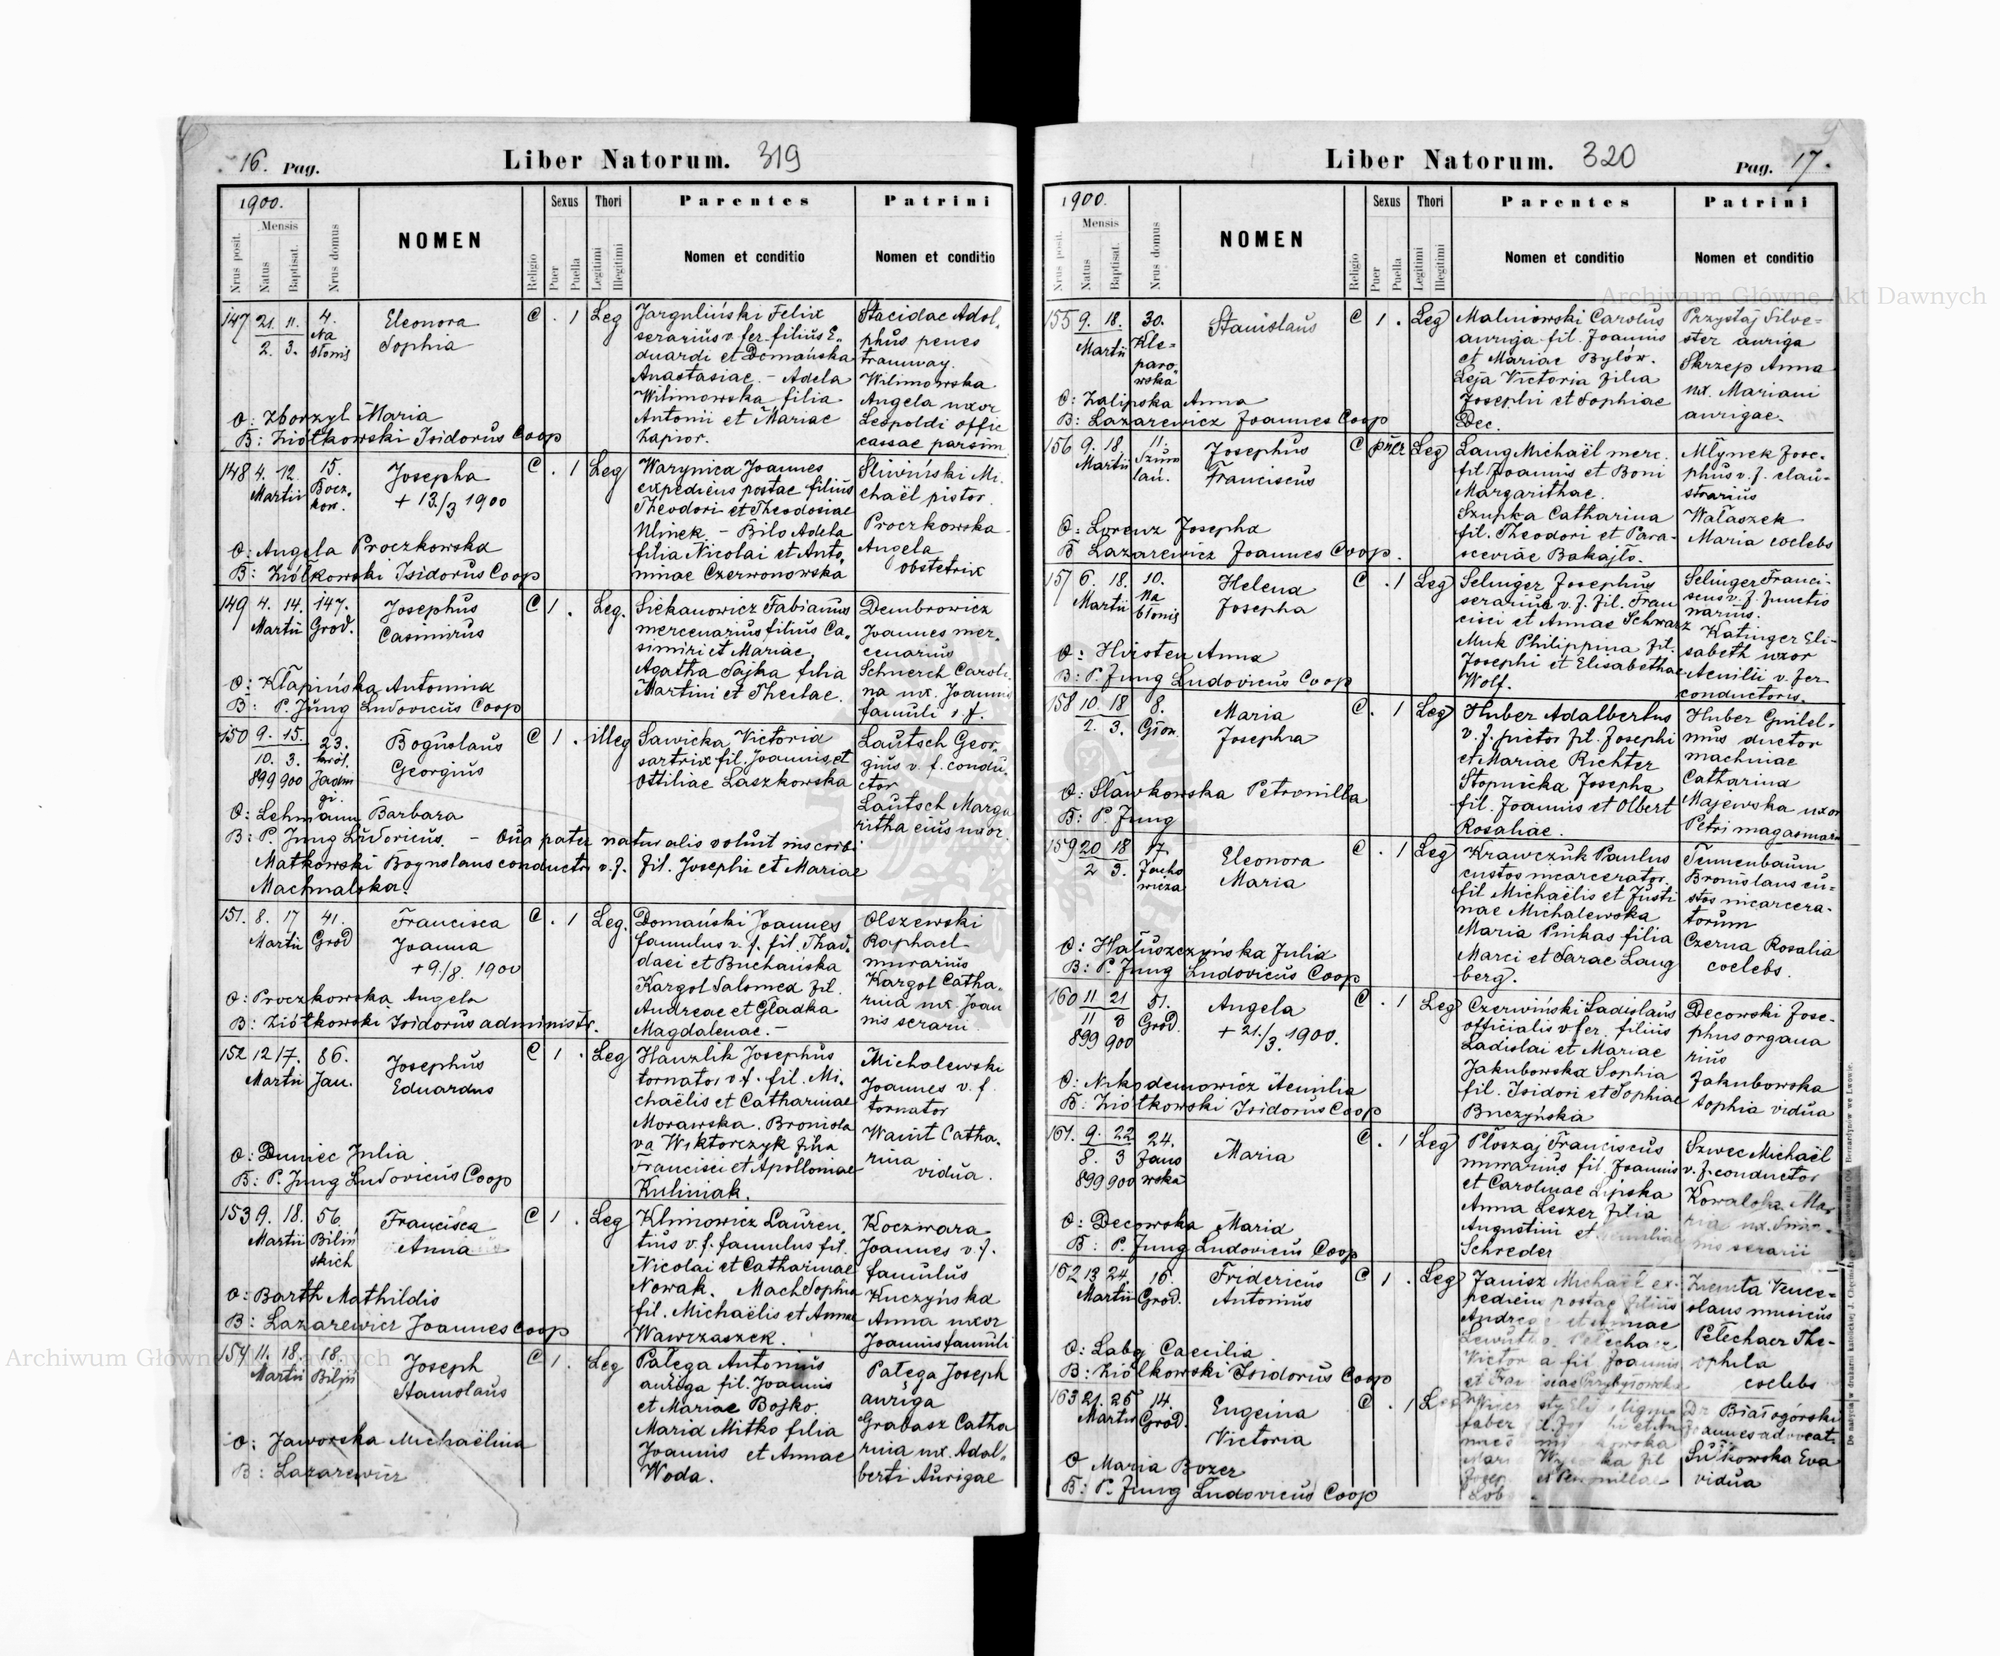 16. Pag.
Liber Natorum. 319
1900.
Mensis
Nrus posit.
Natus
Baptisat.
Nrus domus
NOMEN
Religio
Sexus
Puer
Puella
Thori
Legitimi
Illegitimi
Parentes
Nomen et conditio
Patrini
Nomen et conditio
147 21. 11. 4. Eleonora C . 1 Leg Jarguliński Felix Stacidac Adol-
2. 3. Na Sophia serarius v. fer. filius E- phus penes
błonie duardi et Domańska tramway.
Anastasiae. - Adela Wilimowska
Wilimowska filia Angela uxor
O: Zborzyl Maria Antonii et Mariae Leopoldi offic
B: Ziółkowski Isidorus Coop Łapior. cassae parsim.
148 4. 12. 15. Josepha C . 1 Leg Warynica Joannes Śliwiński Mi-
Martii Bocz- + 13./3 1900 expediens postae filius chaël pistor.
kow. Theodori et Theodosiae Proczkowska
Ulinek. - Bilo Adela Angela
O: Angela Proczkowska filia Nicolai et Anto- obstetrix
B: Ziółkowski Isidorus Coop ninae Czerwonowska
149 4. 14. 147. Josephus C 1 . Leg. Siekanowicz Fabianus Dembrowicz
Martii Grod. Casimirus mercenarius filius Ca- Joannes mer-
simiri et Mariae. cenarius
Agatha Sajka filia Schnerch Caroli-
O: Kłapińska Antonina Martini et Theclae. na ux. Joannis
B: P. Jung Ludovicus Coop famuli v. f.
150 9. 15. 23. Boguslaus C 1 . illeg Sawicka Victoria Lautsch Geor-
10. 3. król. Georgius sartrix fil. Joannis et gius v. f. condu-
899 900 Jadwi Ottiliae Laszkowska ctor
gi. Lautsch Marga
O: Lehmann Barbara ritha eius uxor.
B: P. Jung Ludovicus. - Qua pater naturalis voluit inscribi
Matkowski Boguslaus conductr v. f. fil. Josephi et Mariae
Machnalska.
151. 8. 17 41. Francisca C . 1 Leg. Domański Joannes Olszewski
Martii Grod Joanna famulus v. f. fil. Thad- Raphael
+9./8. 1900 daei et Buchańska murarius
Kargol Salomea fil. Kargol Catha-
O: Proczkowska Angela Andreae et Gładka rina ux. Joan
B: Ziółkowski Isidorus administr. Magdalenae. - nis serarii
152 12 17. 86. Josephus C 1 . Leg Hanzlik Josephus Michalewski
Martii Jan. Eduardus tornator v. f. fil. Mi- Joannes v. f.
chaëlis et Catharinae tornator
Morawska. Bronisla Wanit Catha-
O: Duniec Julia va Wiktorczyk filia rina
B: P. Jung Ludovicus Coop Francisci et Apolloniae vidua.
Kuliniak.
153 9. 18. 56. Francisca C 1 . Leg Klinowicz Lauren- Koczwara
Martii Biliń Anna tius v. f. famulus fil. Joannes v. f.
skich Nicolai et Catharinae famulus
O: Barth Mathildis Nowak. Mach Sophia Kuczyńska
B: Lazarewicz Joannes Coop fil. Michaëlis et Annae Anna uxor
Wawczaszek. Joannis famuli
154 11. 18. 18. Joseph C 1 . Leg Pałęga Antonius Pałęga Joseph
Martii Biliń Stanislaus auriga fil. Joannis auriga
et Mariae Bojko. Grabasz Catha
O: Jaworska Michaëlina Maria Mitko filia rina ux. Adal-
B: Lazarewicz Joannis et Annae berti Aurigae
Woda.
Liber Natorum. 320
Pag. 17.
1900.
Mensis
Nrus posit.
Natus
Baptisat.
Nrus domus
NOMEN
Religio
Sexus
Puer
Puella
Thori
Legitimi
Illegitimi
Parentes
Nomen et conditio
Patrini
Nomen et conditio
155 9. 18. 30. Stanislaus C 1 . Leg Malinowski Carolus Przystaj Silve-
Martii Kle- auriga fil. Joannis ster auriga
paro- et Mariae Bylów. Skrzep Anna
wska Leja Victoria filia ux. Mariani
O: Zalipska Anna Josephi et Sophiae aurigae.
B: Lazarewicz Joannes Coop Dec.
156 9. 18. 11. Josephus C puer Leg Lang Michaël merc. Młynek Jose-
Martii Szum Franciscus fil Joannis et Boni phus v. f. clau-
lań. Margarithae. strarius
Szupka Catharina Wałaszek
O: Lorenz Josepha fil. Theodori et Para- Maria coelebs
B Lazarewicz Joannes Coop. sceviae Bakajło.
157 6. 18. 10. Helena C . 1 Leg Selinger Josephus Selinger Franci-
Martii Na Josepha serarius v. f. fil. Fran scus v. f. functio
błonie cisci et Annae Schwarz narius.
O: Hirsten Anna Muk Philippina fil. Katinger Eli-
B: P. Jung Ludovicus Coop Josephi et Elisabethae sabeth uxor
Wolf. Aemilii v. fer
conductoris.
158 10. 18 8. Maria C . 1 Leg Huber Adalbertus Huber Guilel-
2. 3. Gion. Josepha v. f. pictor fil. Josephi mus ductor
et Mariae Richter machinae
Stopnicka Josepha Catharina
O: Sławkowska Petronilla fil. Joannis et Olbert Majewska uxor
B: P. Jung Rosaliae. Petri magasinarii
159 20 18 17. Eleonora C . 1 Leg Krawczuk Paulus Tennenbaum
2 3. Jacho Maria custos incarcerator. Bronislaus cu-
wicza fil Michaëlis et Justi stos incarcera-
nae Michalewska torum
O: Hałuszczyńska Julia Maria Pinkas filia Czerna Rosalia
B: P. Jung Ludovicus Coop Marci et Sarae Lang coelebs.
berg.
160 11 21 51. Angela C . 1 Leg Czerwiński Ladislaus Decowski Jose-
11 3 Grod. + 21./3. 1900. officialis v fer. filius phus organa
899 900 Ladislai et Mariae rius
O: Nikodemowicz Aemilia Jakubowska Sophia Jakubowska
B: Ziółkowski Isidorus Coop fil. Isidori et Sophiae Sophia vidua
Buczyńska
161. 9. 22 24. Maria C . 1 Leg Płoszaj Franciscus Szwec Michaël
8. 3 Jano murarius fil. Joannis v. f. conductor
899 900 wska et Carolinae Lipska Kowalska Ma-
O: Decowska Maria Anna Leszer filia ria ux.
B: P. Jung Ludovicus Coop Augustini et nis serarii
Schreder
162 13 24. 16. Fridericus C 1 . Leg Janisz Michaël ex- Ziemta Vence-
Martii Grod. Antonius pediens postae filius slaus musicus
Andreae et Annae Pełechaer The-
O: Laby Caecilia fil. Joannis ophila
B: Ziółkowski Isidorus Coop coelebs
163 21. 25 14. Eugeina C . 1 Dr Białogórski
Martii Grod. Victoria faber Joannes advocat.
O Maria Bozer Sułkowska Eva
B: P. Jung Ludovicus Coop vidua
Archiwum Główne Akt Dawnych
Archiwum Główne Akt Dawnych